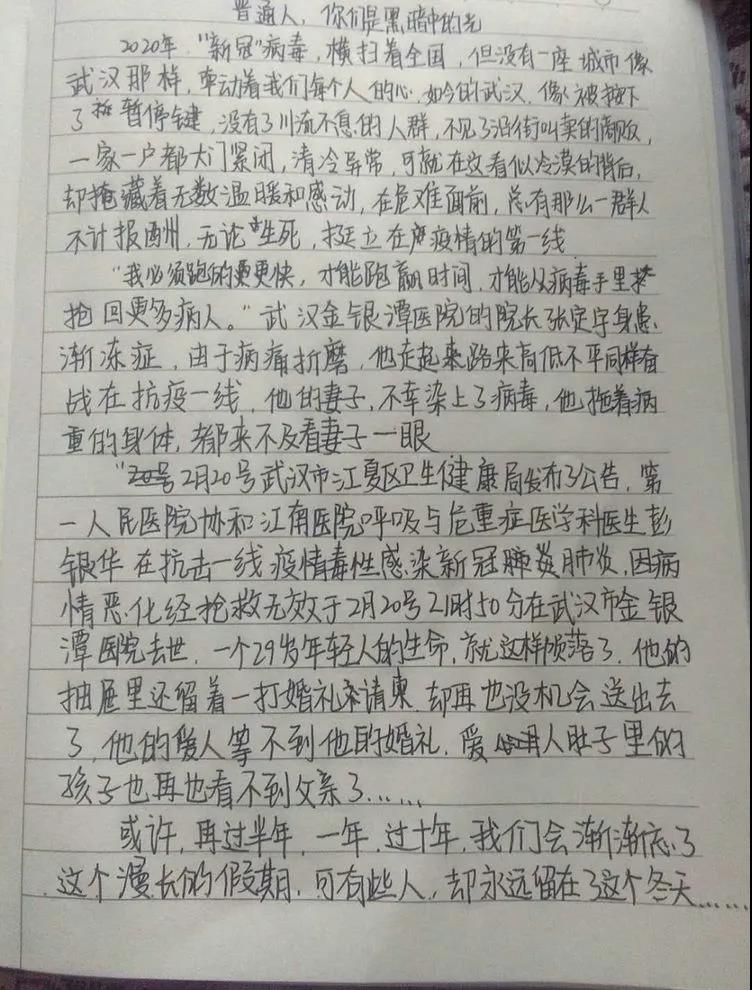 普通人，你们是黑暗中的光
2020年，"新冠"病毒，横扫着全国，但没有一座城市像
武汉那样，牵动着我们每个人的心，如今的武汉，像被按下
了暂停键，没有了川流不息的人群，不见了沿街叫卖的商贩，
一家一户都大门紧闭，清冷异常，可就在这看似冷漠的背后，
却掩藏着无数温暖和感动，在危难面前，总有那么一群人
不计报酬，无论生死，挺立在疫情的第一线
"我必须跑的更更快，才能跑赢时间，才能从病毒手里
抢回更多病人。"武汉金银潭医院的院长张定宇身患
渐冻症，由于病痛折磨，他走起来路来高低不平同样奋
战在抗疫一线，他的妻子，不幸染上了病毒，他拖着病
重的身体，都来不及看妻子一眼
"2月20号武汉市江夏区卫生健康局发布了公告，第
一人民医院协和江南医院呼吸与危重症医学科医生彭
银华在抗击一线疫情毒性感染新冠肺炎，因病
情恶化经抢救无效于2月20号21时50分在武汉市金银
潭医院去世，一个29岁年轻人的生命，就这样陨落了，他的
抽屉里还留着一打婚礼请柬，却再也没机会送出去
了，他的爱人等不到他的婚礼，爱人肚子里的
孩子也再也看不到父亲了……
或许，再过半年，一年，过十年，我们会渐渐忘了
这个漫长的假期，可有些人，却永远留在了这个冬天……